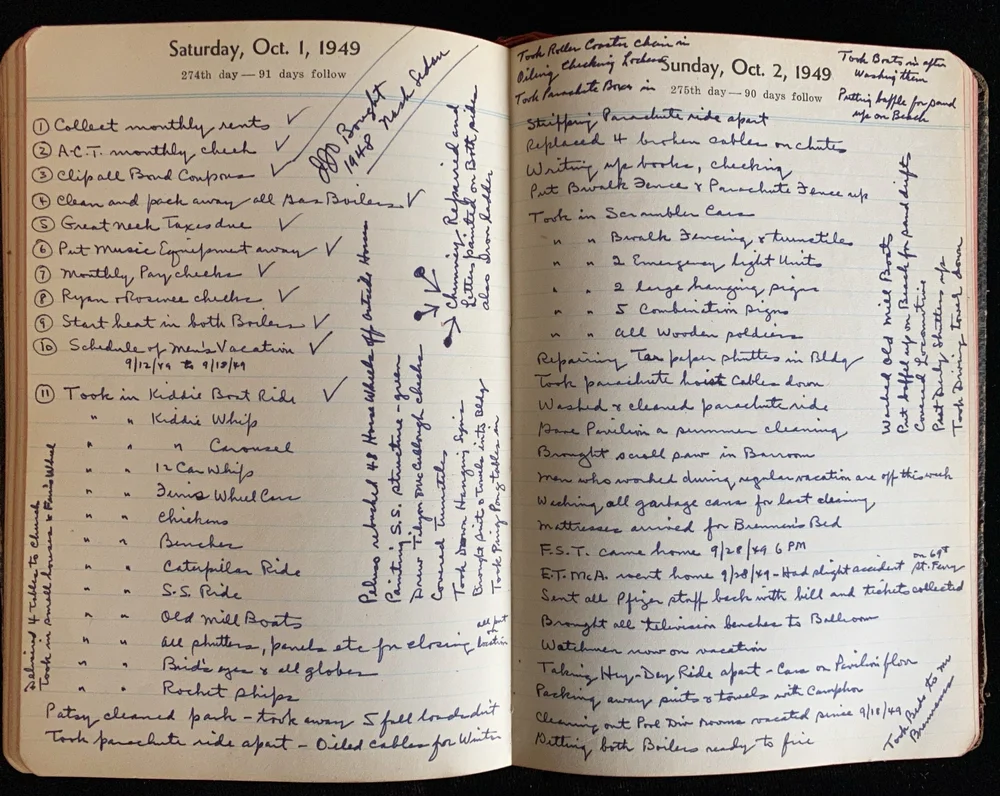 Saturday, Oct. 1, 1949
274th day — 91 days follow
Bought
1948 Nash Sedan
① Collect monthly rents ✓
② A.C.T. monthly check ✓
③ Clip all Bond Coupons ✓
④ Clean and pack away all Gas Boilers ✓
⑤ Great Neck Taxes due ✓
⑥ Put Music Equipment away ✓
⑦ Monthly Pay checks ✓
⑧ Ryan & Rosinee checks ✓
⑨ Start heat in both Boilers ✓
⑩ Schedule of Men's Vacation ✓
9/12/49 to 9/18/49
⑪ Took in Kiddie Boat Ride ✓
" " Kiddie Whip
" " " Carousel
" " 12 Car Whips
" " Ferris Wheel Cars
" " Chickens
" " Benches
" " Caterpillar Ride
" " S.S. Ride
" " Old Mill Boats
" " all shutters, panels etc for closing all put location
" " Bird's eyes & all globes
" " Rocket Ships
Patsy cleaned park – took away 5 full loads dirt
Took parachute ride apart – Oiled cables for Winter
Delivered 4 tables to Church
Took in small houses & Ferris Wheel
rebushed 48 Horse Wheels off outside Horses
Painting S.S. structure - green
Drew Tilyou McCullough checks
Covered Turnstiles
Took Down Hanging Signs
Brought suits & Towels into Bldg
Took Ping Pong tables in
Chimney Repaired and
Letters painted on Both sides
also Iron ladder
Took Roller Coaster Chain in
Oiling Checking Lockers
Took Parachute Boxes in
Sunday, Oct. 2, 1949
275th day — 90 days follow
Took Boats in after
Washing them
Putting baffle for sand
up on Beach
Stripping Parachute ride apart
Replaced 4 broken cables on chutes
Writing up books, checking
Put Bwalk Fence & Parachute Fence up
Took in Scrambler Cars
" " Bwalk Fencing & turnstiles
" " 2 Emergency Light Units
" " 2 large hanging signs
" " 5 Combination Signs
" " All Wooden soldiers
Repairing Tar paper shutters in Bldg
Took parachute hoist Cables down
Washed & cleaned parachute ride
Gave Pavilion a summer cleaning
Brought scroll saw in Barroom
Men who worked during regular vacation are off this week
Washing all garbage cans for last cleaning
Mattresses arrived for Brennen's Bed
F.S.T. came home 9/28/49 6 PM
E.T. McA. went home 9/28/49 - Had slight accident on 69th St. Ferry
Sent all Pfizer stuff back with bill and tickets collected
Brought all television benches to Ballroom
Watchmen now on vacation
Taking Hey-Dey Ride apart - Cars on Pavilion floor
Packing away suits & towels with Camphor
Cleaning out Pool Div rooms vacated since 9/18/49
Getting both Boilers ready to fire
Took Beds to
Washed Old Mill Boats
Put baffel up on Beach for sand drifts
Covered Locomotive
Put Shutters up
Took Diving tower down